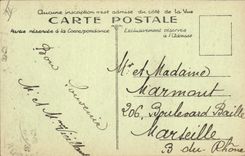 Aucune inscription n'est admise du côté de la Vue
CARTE POSTALE
Partie réservée à la Correspondance
Exclusivement réservée
à l'Adresse
Bon
Souvenir
M. et Mme
Mr et Madame
Marmont
206, Boulevard Baille
Marseille
B du Rhône